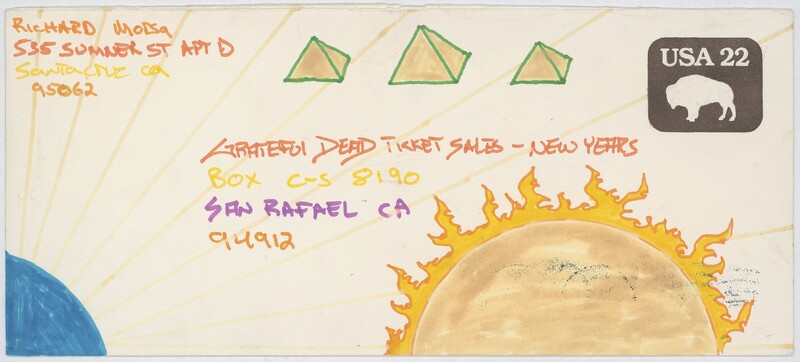 RICHARD Mo
535 SUMNER ST APT D
SANTA CRUZ CA
95062
USA 22
GRATEFUl DEAD TICKET SALES - NEW YEARS
BOX C-S 8190
SAN RAFAEL CA
94912